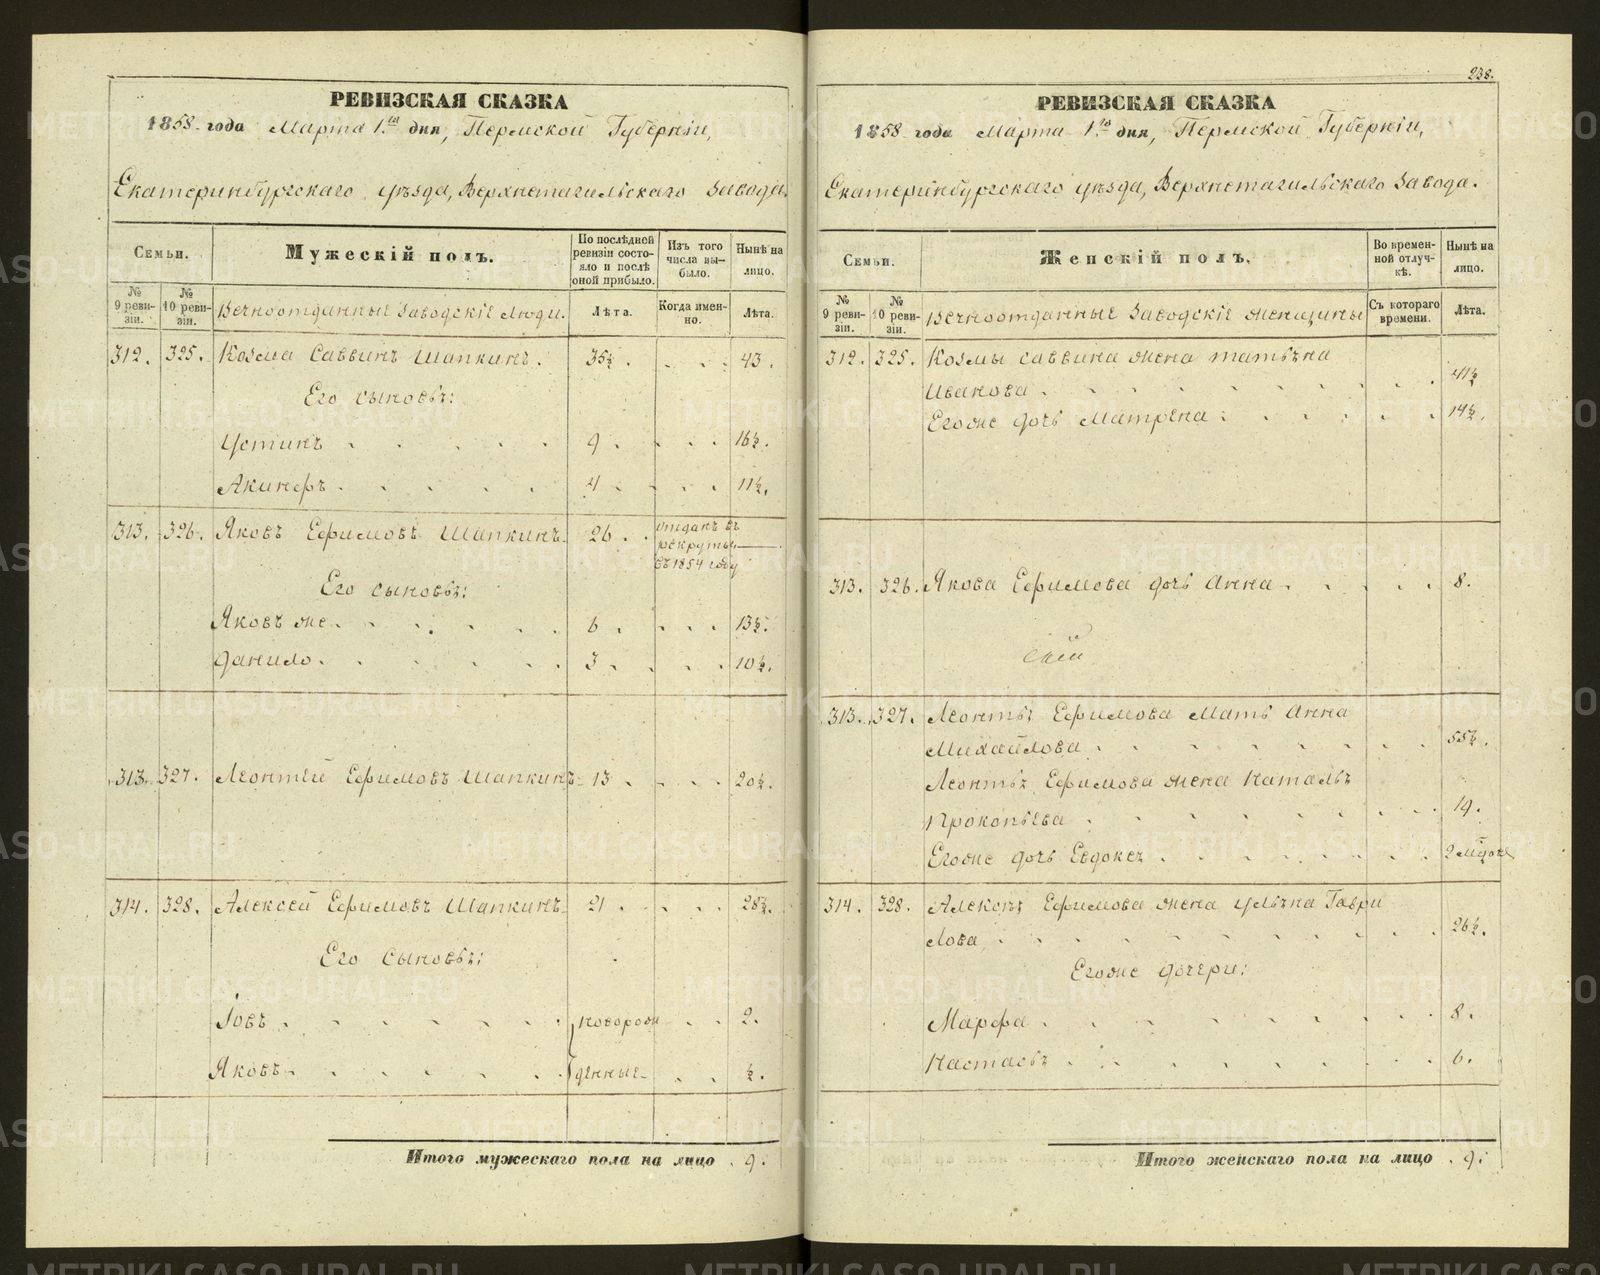 238.
РЕВИЗСКАЯ СКАЗКА
1858 года Марта 1го дня, Пермской Губерніи,
Екатеринбургскаго уѣзда, Верхнетагильскаго завода.
Семьи. Мужескій полъ. По послѣдней ревизіи состояло и послѣ оной прибыло. Изъ того числа выбыло. Нынѣ на лицо.
№ 9 ревизіи. № 10 ревизіи. Вечноотданные Заводскіе люди. Лѣта. Когда именно. Лѣта.
312. 325. Козма Саввинъ Шапкинъ. 35½. 43.
Его сыновья:
Устинъ 9. 16½.
Акинфъ 4. 11½.
313. 326. Яковъ Ефимовъ Шапкинъ 26. отданъ въ рекруты въ 1854 году
Его сыновья:
Яковъ же 6. 13½.
Данило 3. 10½.
313. 327. Леонтей Ефимовъ Шапкинъ 13. 20½.
314. 328. Алексей Ефимовъ Шапкинъ 21. 28½.
Его сыновья:
Іовъ новорож 2.
Яковъ денные ½.
Итого мужескаго пола на лицо 9.
РЕВИЗСКАЯ СКАЗКА
1858 года Марта 1го дня, Пермской Губерніи,
Екатеринбургскаго уѣзда, Верхнетагильскаго завода.
Семьи. Женскій полъ. Во временной отлучкѣ. Нынѣ на лицо.
№ 9 ревизіи. № 10 ревизіи. Вечноотданные Заводскіе женщины Съ котораго времени. Лѣта.
312. 325. Козмы Саввина жена Татьяна
Иванова 41½
Его же дочь Матрена 14½.
313. 326. Якова Ефимова дочь Анна 8.
313. 327. Леонтья Ефимова мать Анна
Михайлова 55½.
Леонтья Ефимова жена Наталья
Прокопьева 19.
Его же дочь Евдокея
314. 328. Алексея Ефимова жена Ульяна Гаври
лова 26½.
Его же дочери:
Марфа 8.
Настасья 6.
Итого женскаго пола на лицо 9.
METRIKI.GASO-URAL.RU